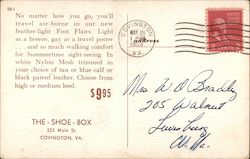 SK-1
No matter how you go, you'll
travel air-borne in our new
feather-light Foot Flairs. Light
as a breeze, gay as a travel poster
. . . and so much walking comfort
for Summertime sight-seeing. In
white Nylon Mesh trimmed in
your choice of tan or blue calf or
black patent leather. Choose from
high or medium heel.
$9.95
THE-SHOE-BOX
223 Main St.
COVINGTON, VA.
COVINGTON
MAY
VA.
Address
Mrs A D Bradley
205 Walnut
Lewisburg
W. Va.